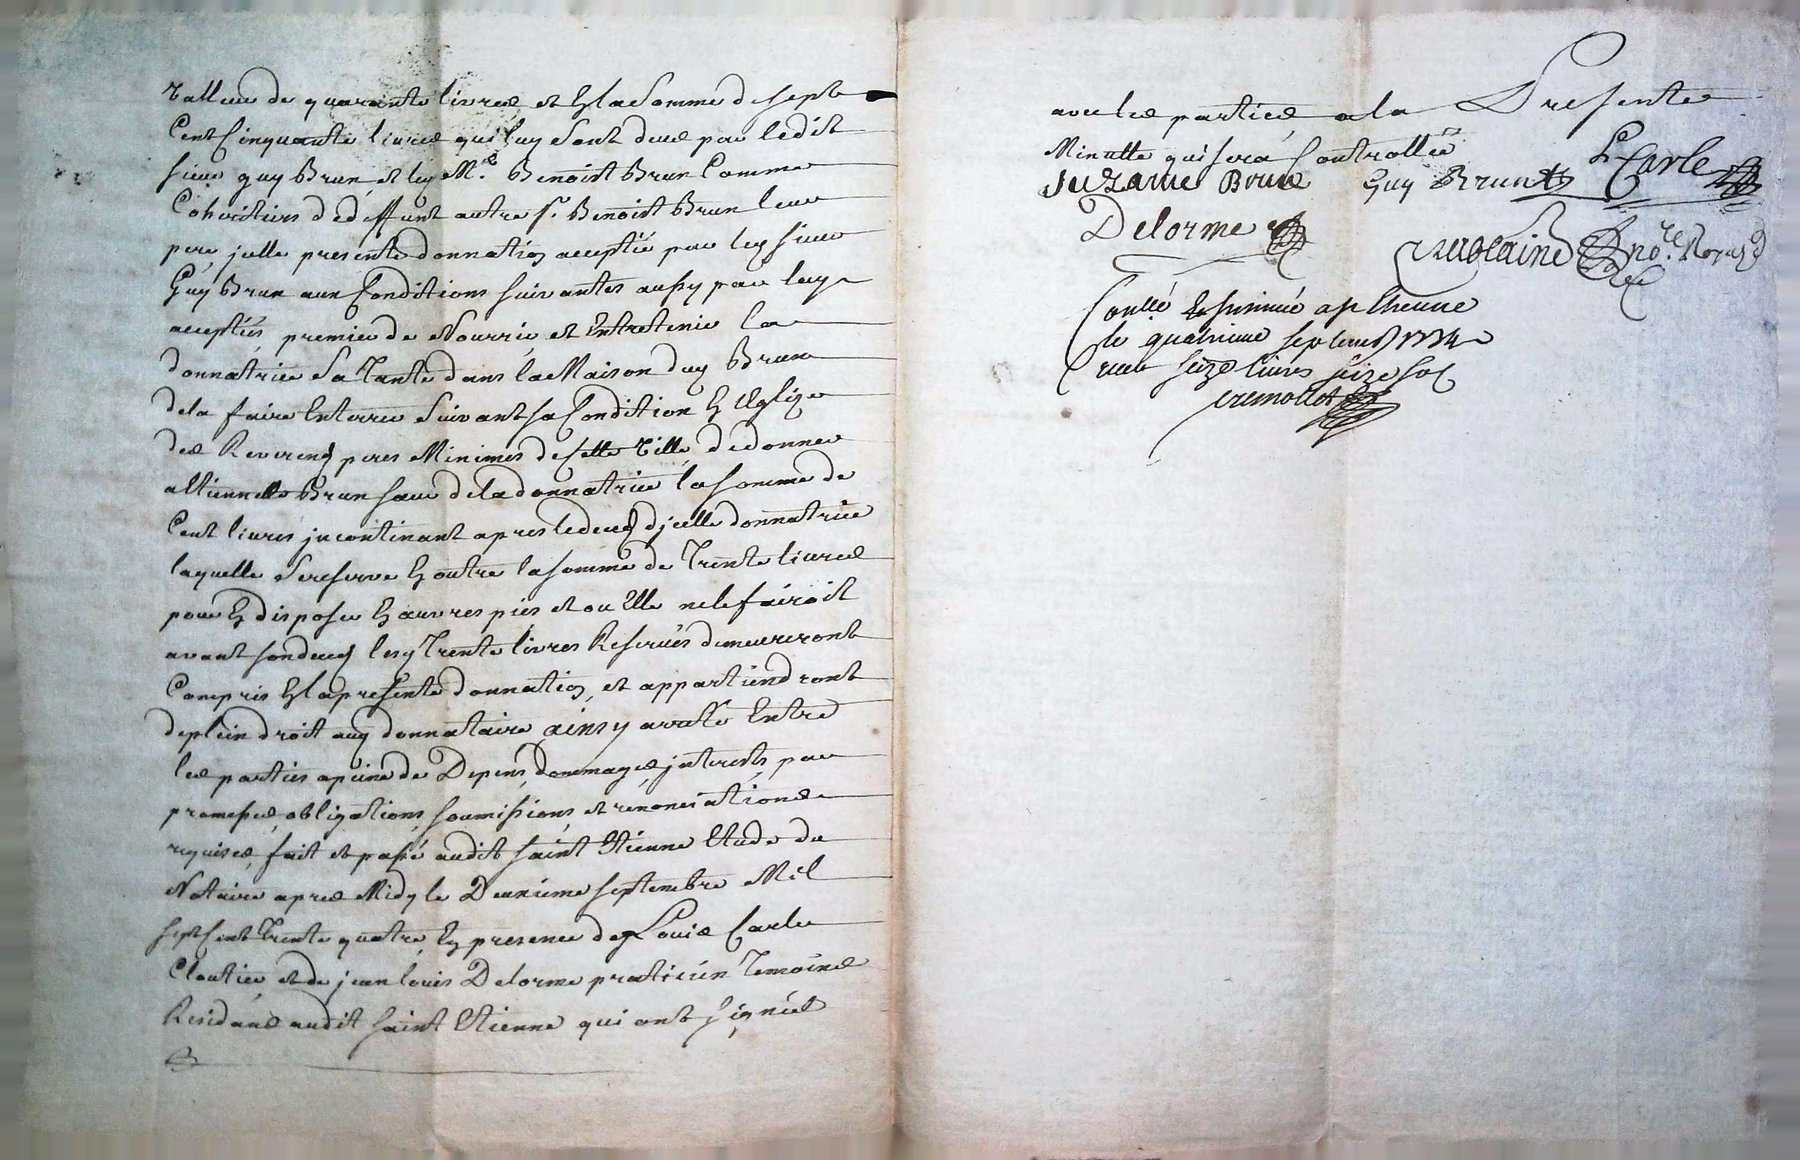 valleur de quarante livres et En la somme de sept
Cent Cinquante livres qui luy sont dues par ledit
sieur guy Brun et led. Mr. Benoist Brun Comme
Cohéritiers dedeffunt autre sr. Benoist Brun leur
pere jcelle presente donnation acceptée par led. sieur
Guy Brun aux Conditions suivantes aussy par luy
acceptées premier de Nourrir et Entretenir la
donnatrice sa Tante dans la Maison dud. Brun
dela faire Enterrer suivant sa Condition En l'Eglize
des Reverends peres Minimes de cette ville, de donner
a Brun sœur dela donnatrice la somme de
Cent livres jncontinant apres le deceds d'jcelle donnatrice
laquelle se reserve En outre la somme de Trente livres
pour En disposer En œuvres pies et ou Elle ne le fairoit
avant son deceds lesd. Trente livres Reservées demeureront
Compris En la presente donnation, et appartiendront
de plein droit aud. donnataire, ainsy arresté Entre
les parties a peine de Depens, dommages jnterests par
promesses, obligations, soumissions, et renonciationes
requises, fait et passé audit saint Etienne Etude du
Notaire apres Midy le Deuxieme septembre Mil
sept Cent Trente quatre, En presence de Louis Carle
Cloutier et de jean louis Delorme praticien Temoins
Residans audit saint Etienne qui ont signées
avec les parties a la Presente
Minutte qui sera Controllée
suzanne Brun Guy Brun L Carle
Delorme
nore. Royal
Conllé Et Insinué a st Etienne
le quatrieme septembre 1734
seize livres seize sol